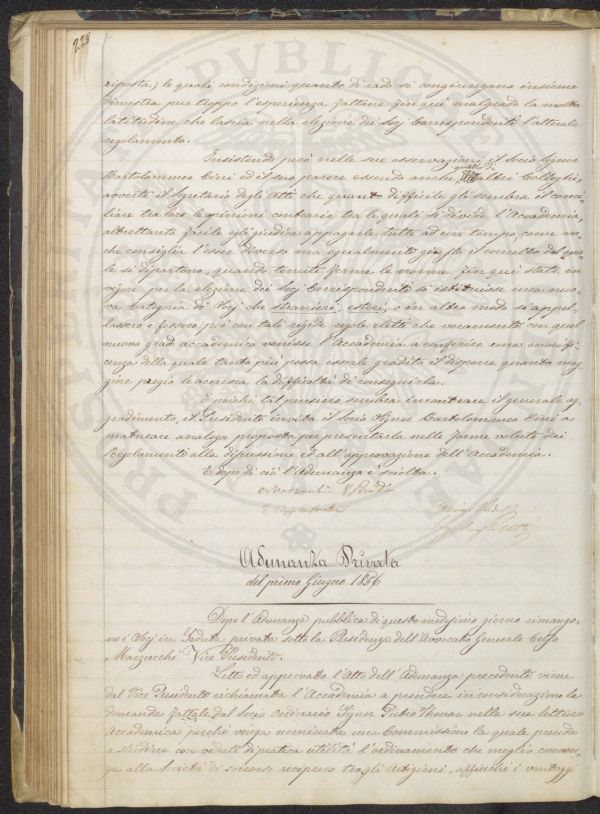 228
riposta; le quali condizioni quanto di rado si congiungano insieme
dimostra pur troppo l'esperienza fattane fin qui malgrado la molta
latitudine che lascia nella elezione dei Soci Corrispondenti l'attuale
regolamento.
Insistendo però nelle sue osservazioni il Socio Signor
Bartolommeo Cini ed il suo parere essendo anche quello di altri Colleghi,
avverte il Segretario degli Atti che quanto difficile gli sembra il conci-
liare tra loro le opinioni contrarie tra le quali si divide l'Accademia,
altrettanto facile egli giudica appagarle tutte ad un tempo, come an-
che consiglia l'esser diverso ma egualmente giusto il concetto dal qua-
le si dipartono, quando tenute ferme le norme fin qui state in
vigore per la elezione dei Soci Corrispondenti si istituisse una nuo-
va Categoria di Soci che stranieri, esteri, o in altro modo si appel-
lassero e fossero poi con tali rigide regole eletti che veramente con quel
nuovo grado accademico venisse l'Accademia a conferire una onorifi-
cenza della quale tanto più possa essere gradito il disporre quanto mag-
gior pregio le accresca la difficoltà di conseguirla.
E poichè tal pensiero sembra incontrare il generale ag-
gradimento, il Presidente invita il Socio Signor Bartolommeo Cini a
maturare analoga proposta per presentarla nelle forme volute dai
Regolamenti alla discussione ed all'approvazione dell'Accademia.
E dopo di ciò l'Adunanza è sciolta.
Adunanza Privata
del primo Giugno 1856
Dopo l'Adunanza pubblica di questo medesimo giorno rimango-
no i Soci in Seduta privata sotto la Presidenza dell'Avvocato Generale Celso
Marzucchi Vice Presidente.
Letto ed approvato l'Atto dell'Adunanza precedente viene
dal Vice Presidente richiamata l'Accademia a prendere in considerazione la
domanda fattale dal Socio Ordinario Signor Pietro Thouar nella sua lettura
Accademica perchè venga nominata una Commissione la quale prenda
a studiare con vedute di pratica utilità l'ordinamento che meglio conven-
ga alla Società di soccorso reciproco tra gli Artigiani, affinchè i vantaggi